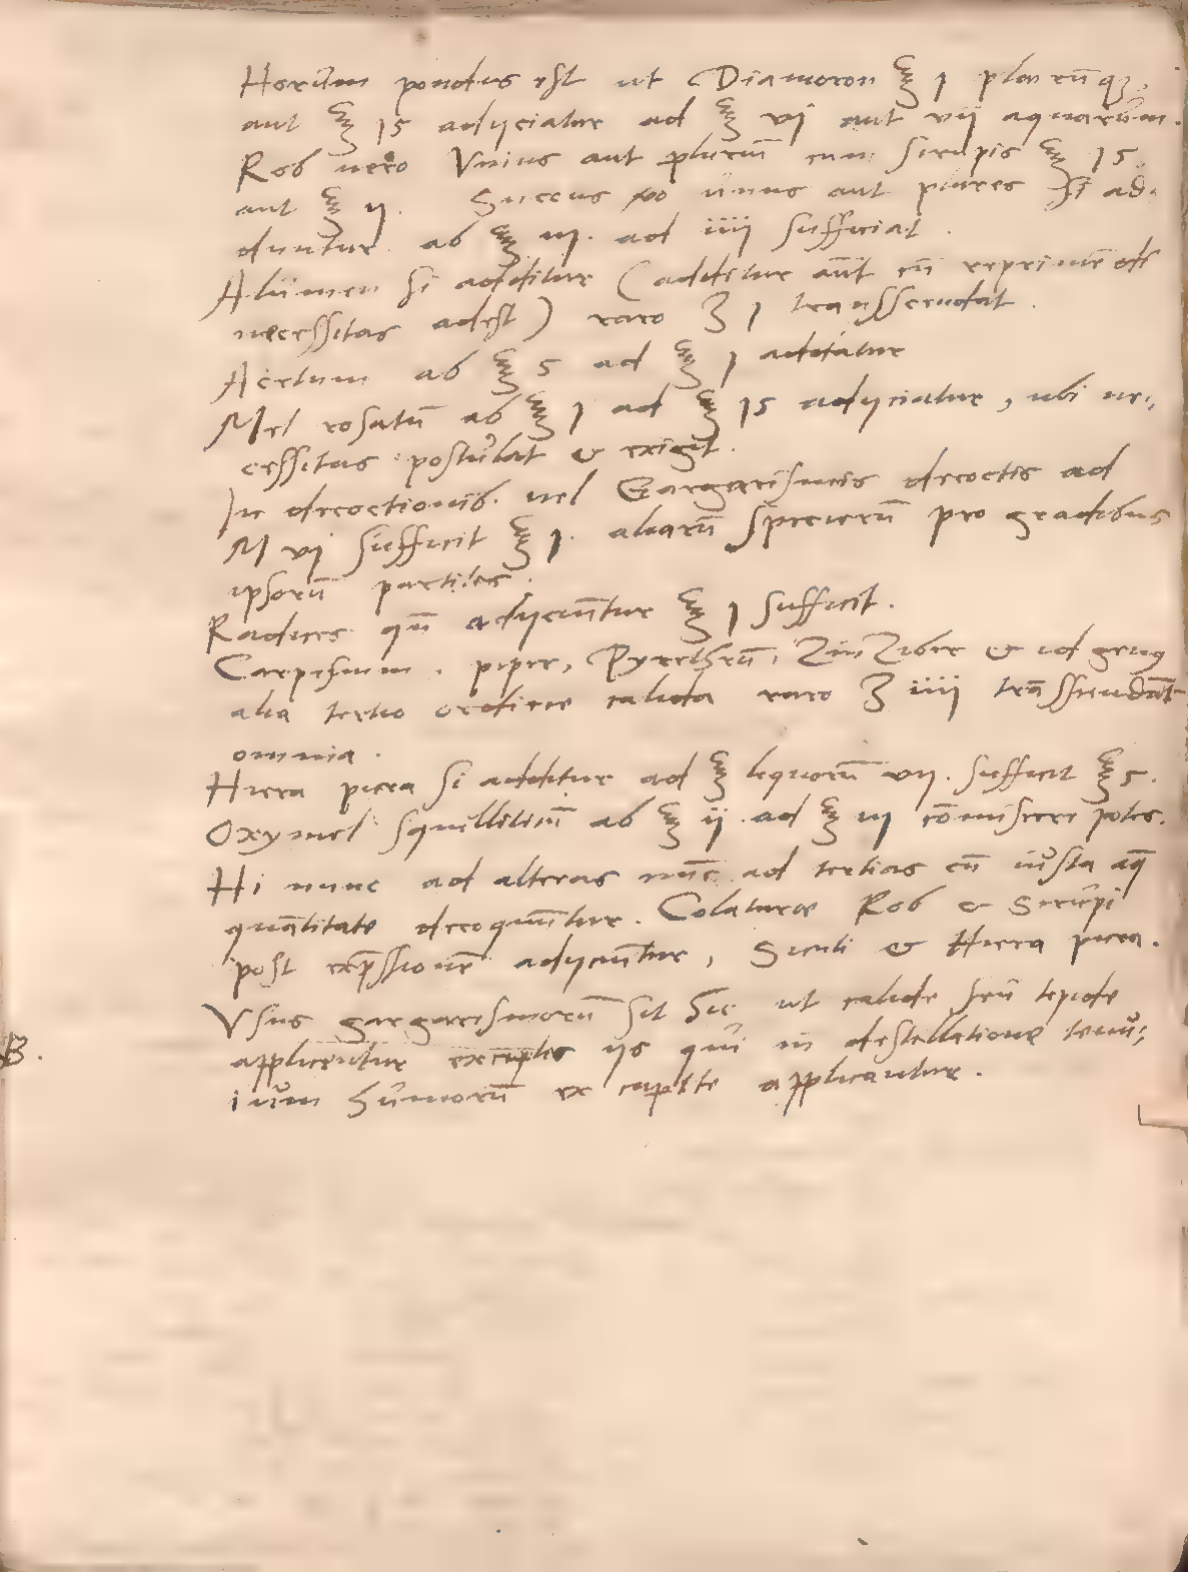 Horum pondus est ut Diamoron ℥ j plerūq3
aut ℥ jß adijciatur ad ℥ vj aut vij aquarum.
Rob vero Vnius aut plurium cum sirupis ℥ jß
aut ℥ ij. Succus vo unus aut plures si ad-
duntur ab ℥ iij. ad iiij sufficiat.
Alumen si additur (additur aūt cū reprimēdi
necessitas adest) raro ʒ j transscendat.
Acetum ab ℥ ß ad ℥ j addatur
Mel rosatū ab ℥ j ad ℥ jß adijciatur, ubi ne-
cessitas postulat & exigit.
In decoctionib. vel Gargarismis decoctis ad
M vj sufficit ℥ j. aliarū specierū pro gradibus
ipsorū partiles.
Radices qn̄ adijciūntur ℥ j sufficit.
Carpesium, piper, Pyrethrū, ZinZiber & id genus
alia tertio ordine calida raro ʒ iiij trāsscendāt
omnia.
Hiera picra si additur ad ℥ liquorū vij. sufficit ℥ ß.
Oxymel squilliticū ab ℥ ij ad ℥ iij cōmisceri potes.
Hi nunc ad alteras nūc ad tertias cū iusta aq̄
quātitate decoquūntur. Colaturæ Rob & Sirupi
post expssionē adijciūntur, Succi & Hiera picra.
Vsus gargarismorū sit hic ut calide seu tepide
applicentur exceptis ijs qui in destillatione tenu-
ium humorū ex capite applicantur.
B.